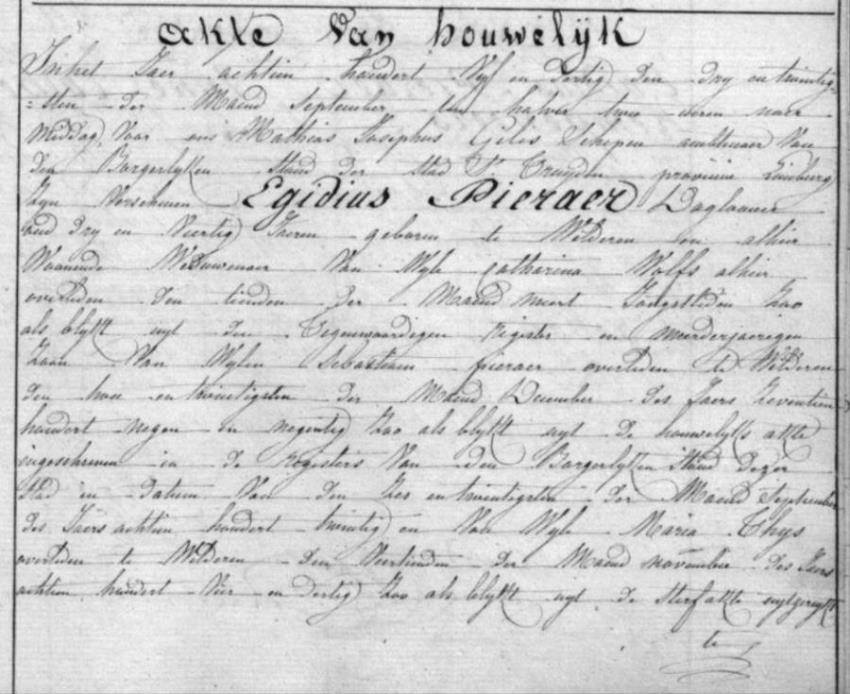 akte van houwelyk
In het Jaer achtien hondert Vyf en dertig den dry en twintig-
=sten der Maend September ten halver twee uren naer
Middag, Voor ons Mathias Josephus Gilis Schepen ambtenaer Van
den Borgerlyken Stand der Stad St Truyden provincie Limburg
Zyn Verschenen Egidius Pieraer Daglooner
oud dry en Veertig Jaeren geboren te Wilderen en alhier
Woonende Weduwenaer Van Wyle Catharina Wolfs alhier
overleden den tienden der Maend meert Jongstleden Zoo
als blykt uyt den Tegenwoordigen register en meerderjaerigen
Zoon Van Wylen Sebastiaen pieraer overleden te Wilderen
den twee en twintigsten der Maend December des Jaers Zeventien
hondert negen en negentig Zoo als blykt uyt de houwelyks akte
ingeschreven in de registers Van den Borgerlyken Stand dezer
Stad in datum Van den Zes en twintigsten der Maend September
des Jaers achtien hondert twintig en Van Wyle Maria Thys
overleden te Wilderen den Veertienden der Maend november des Jaers
achtien hondert Vier en dertig Zoo als blykt uyt de sterf akte uytgereykt
te